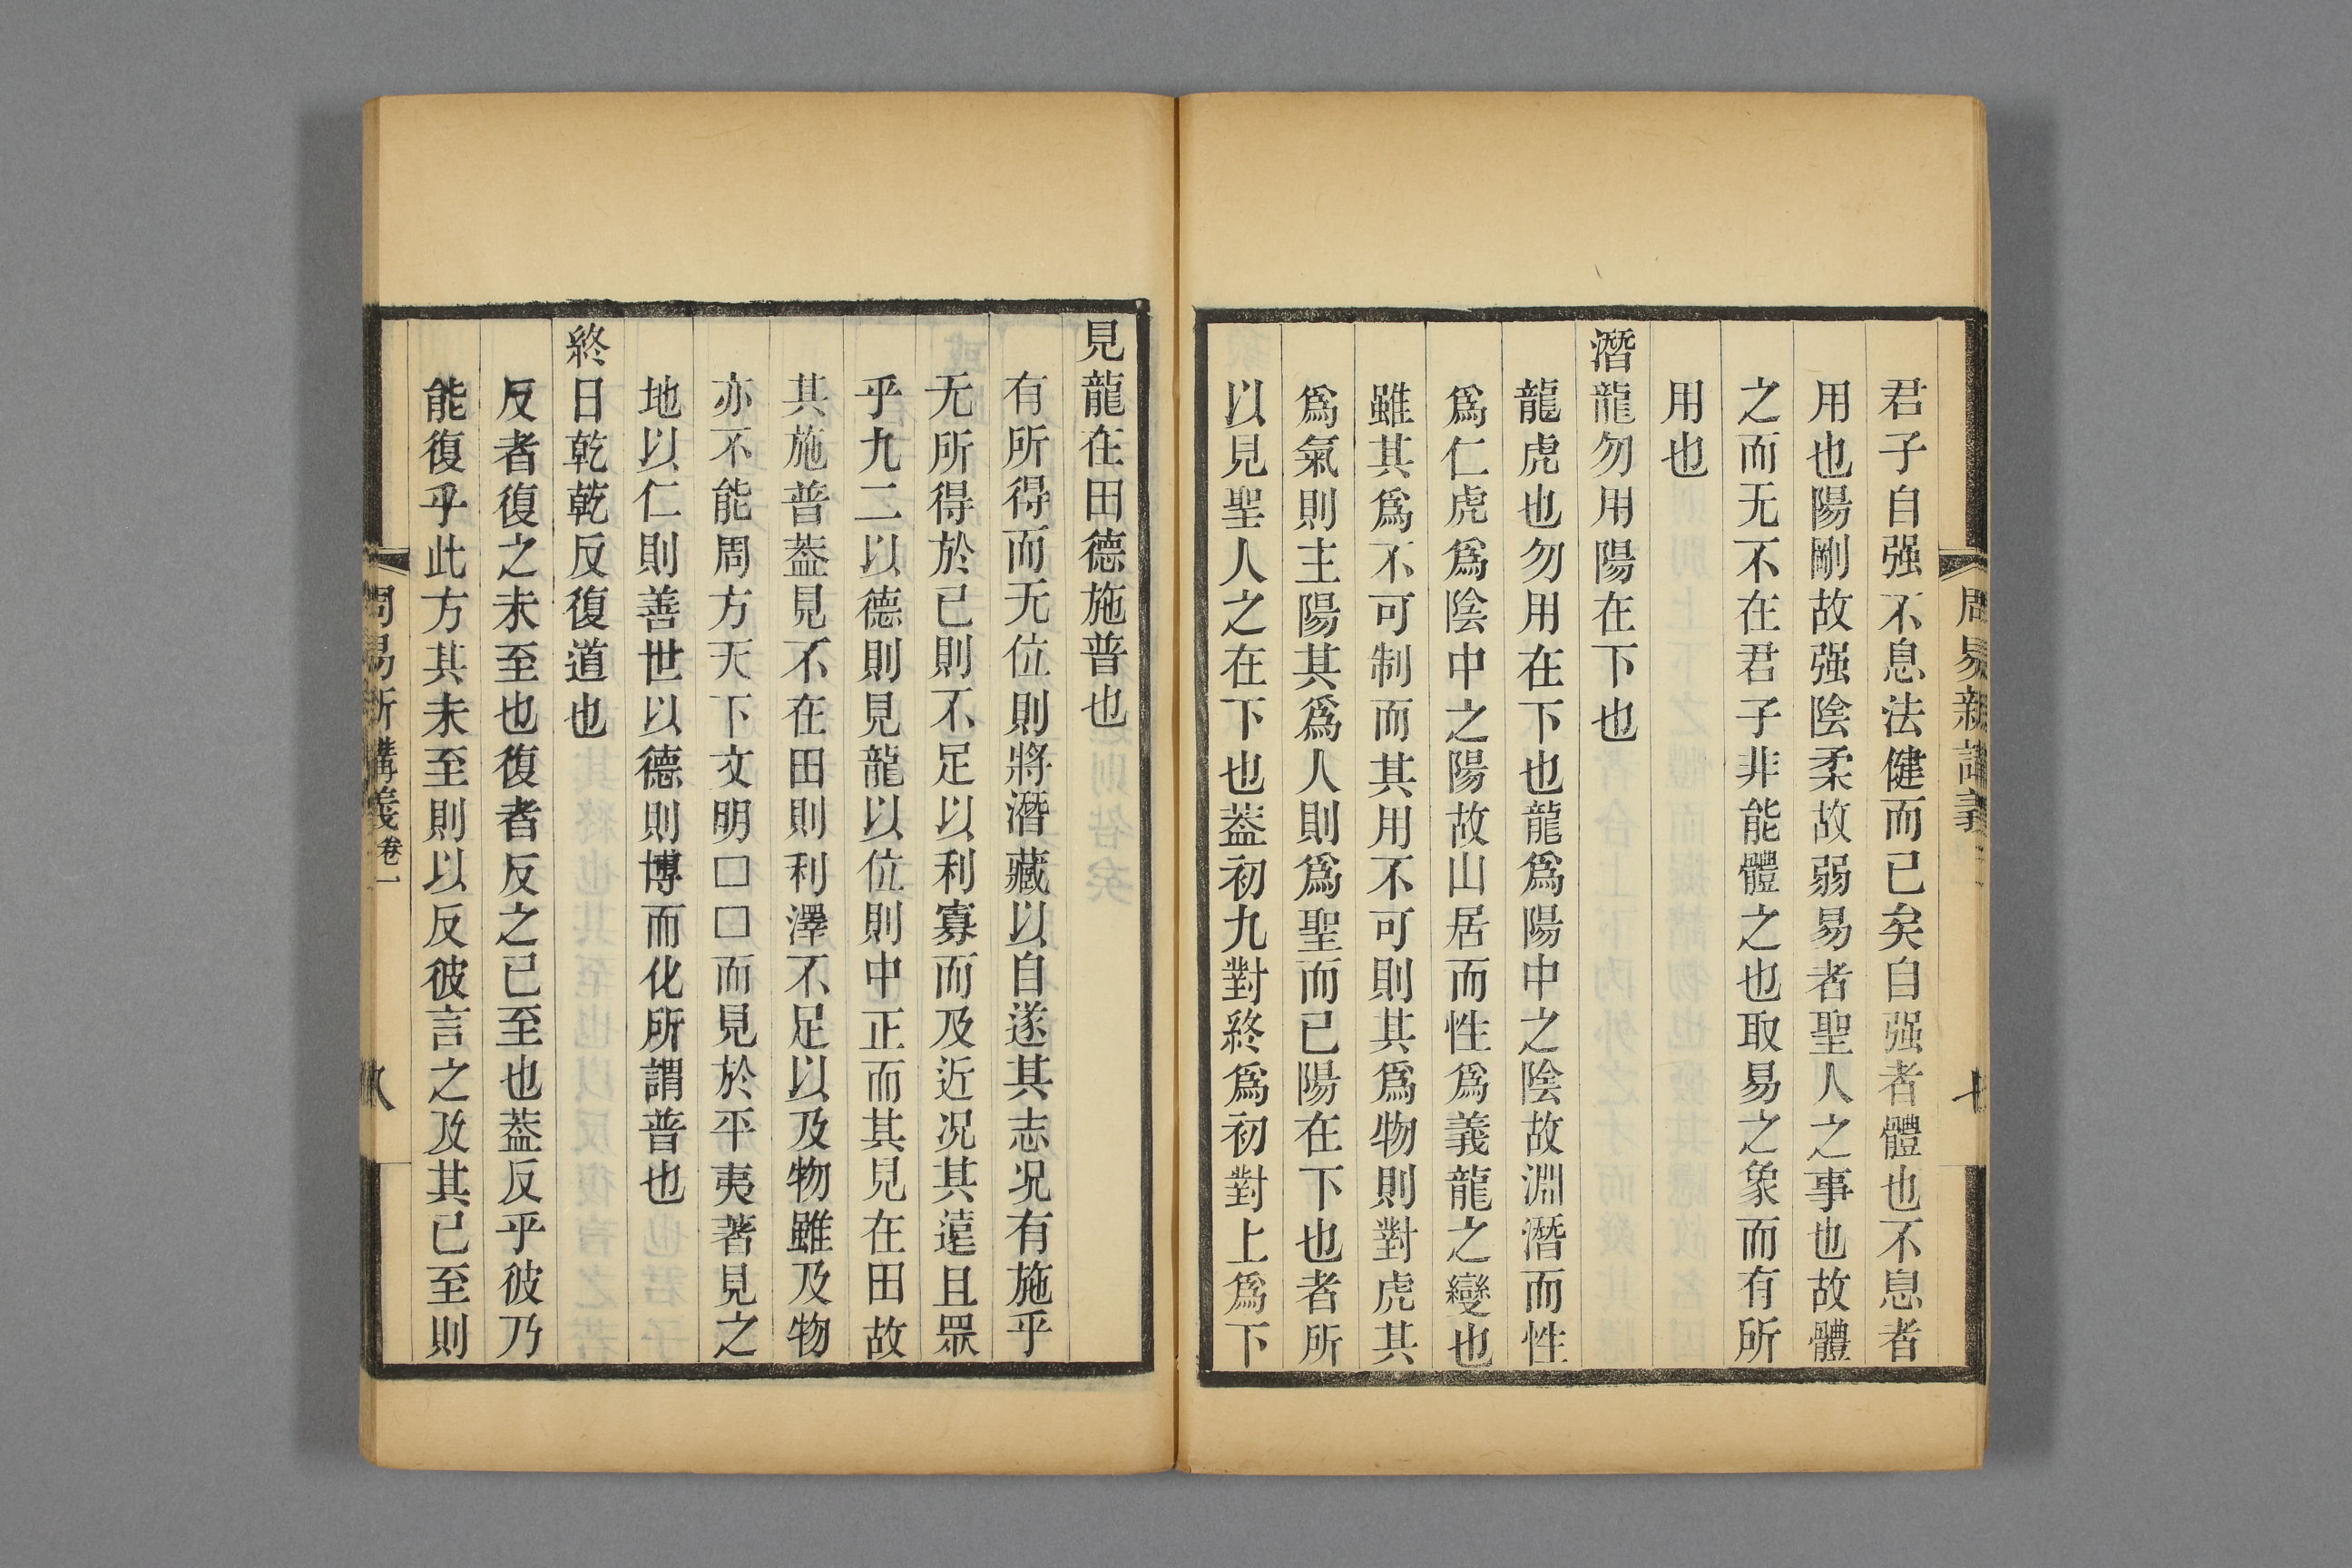 周易新講義
七
君子自强不息法健而已矣自强者體也不息者
用也陽剛故强陰柔故弱易者聖人之事也故體
之而无不在君子非能體之也取易之象而有所
用也
潛龍勿用陽在下也
龍虎也勿用在下也龍爲陽中之陰故淵潛而性
爲仁虎爲陰中之陽故山居而性爲義龍之變也
雖其爲不可制而其用不可則其爲物則對虎其
爲氣則主陽其爲人則爲聖而已陽在下也者所
以見聖人之在下也葢初九對終爲初對上爲下
見龍在田德施普也
有所得而无位則將潛藏以自遂其志况有施乎
无所得於已則不足以利寡而及近况其遠且眾
乎九二以德則見龍以位則中正而其見在田故
其施普葢見不在田則利澤不足以及物雖及物
亦不能周方天下文明□□而見於平夷著見之
地以仁則善世以德則博而化所謂普也
終日乾乾反復道也
反者復之未至也復者反之已至也葢反乎彼乃
能復乎此方其未至則以反彼言之及其已至則
周易新講義卷一
八